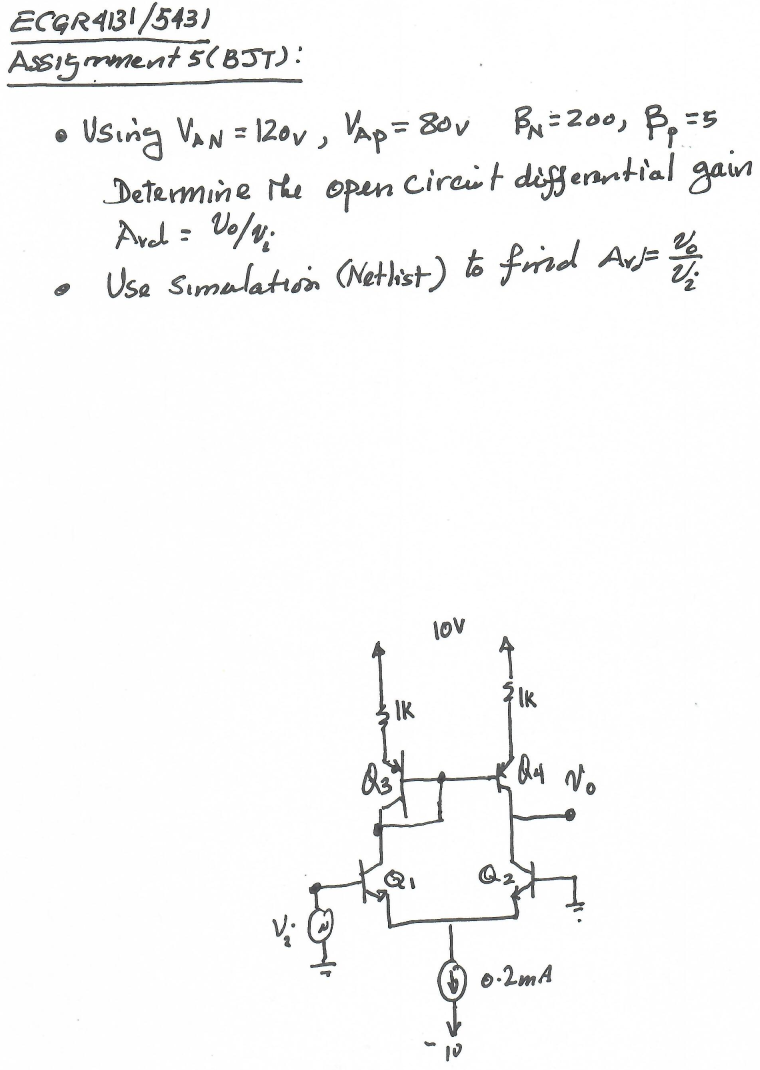 ECGR4131/5431
Assignment 5(BJT):
• Using VAN = 120v, VAP = 80v BN = 200, Bp = 5
Determine the open circuit differential gain
Avd = vo/vi
• Use Simulation (Netlist) to find Avd = vo/vi
10V
1K
1K
Q3
Q4
vo
Q1
Q2
Vi
0.2mA
-10